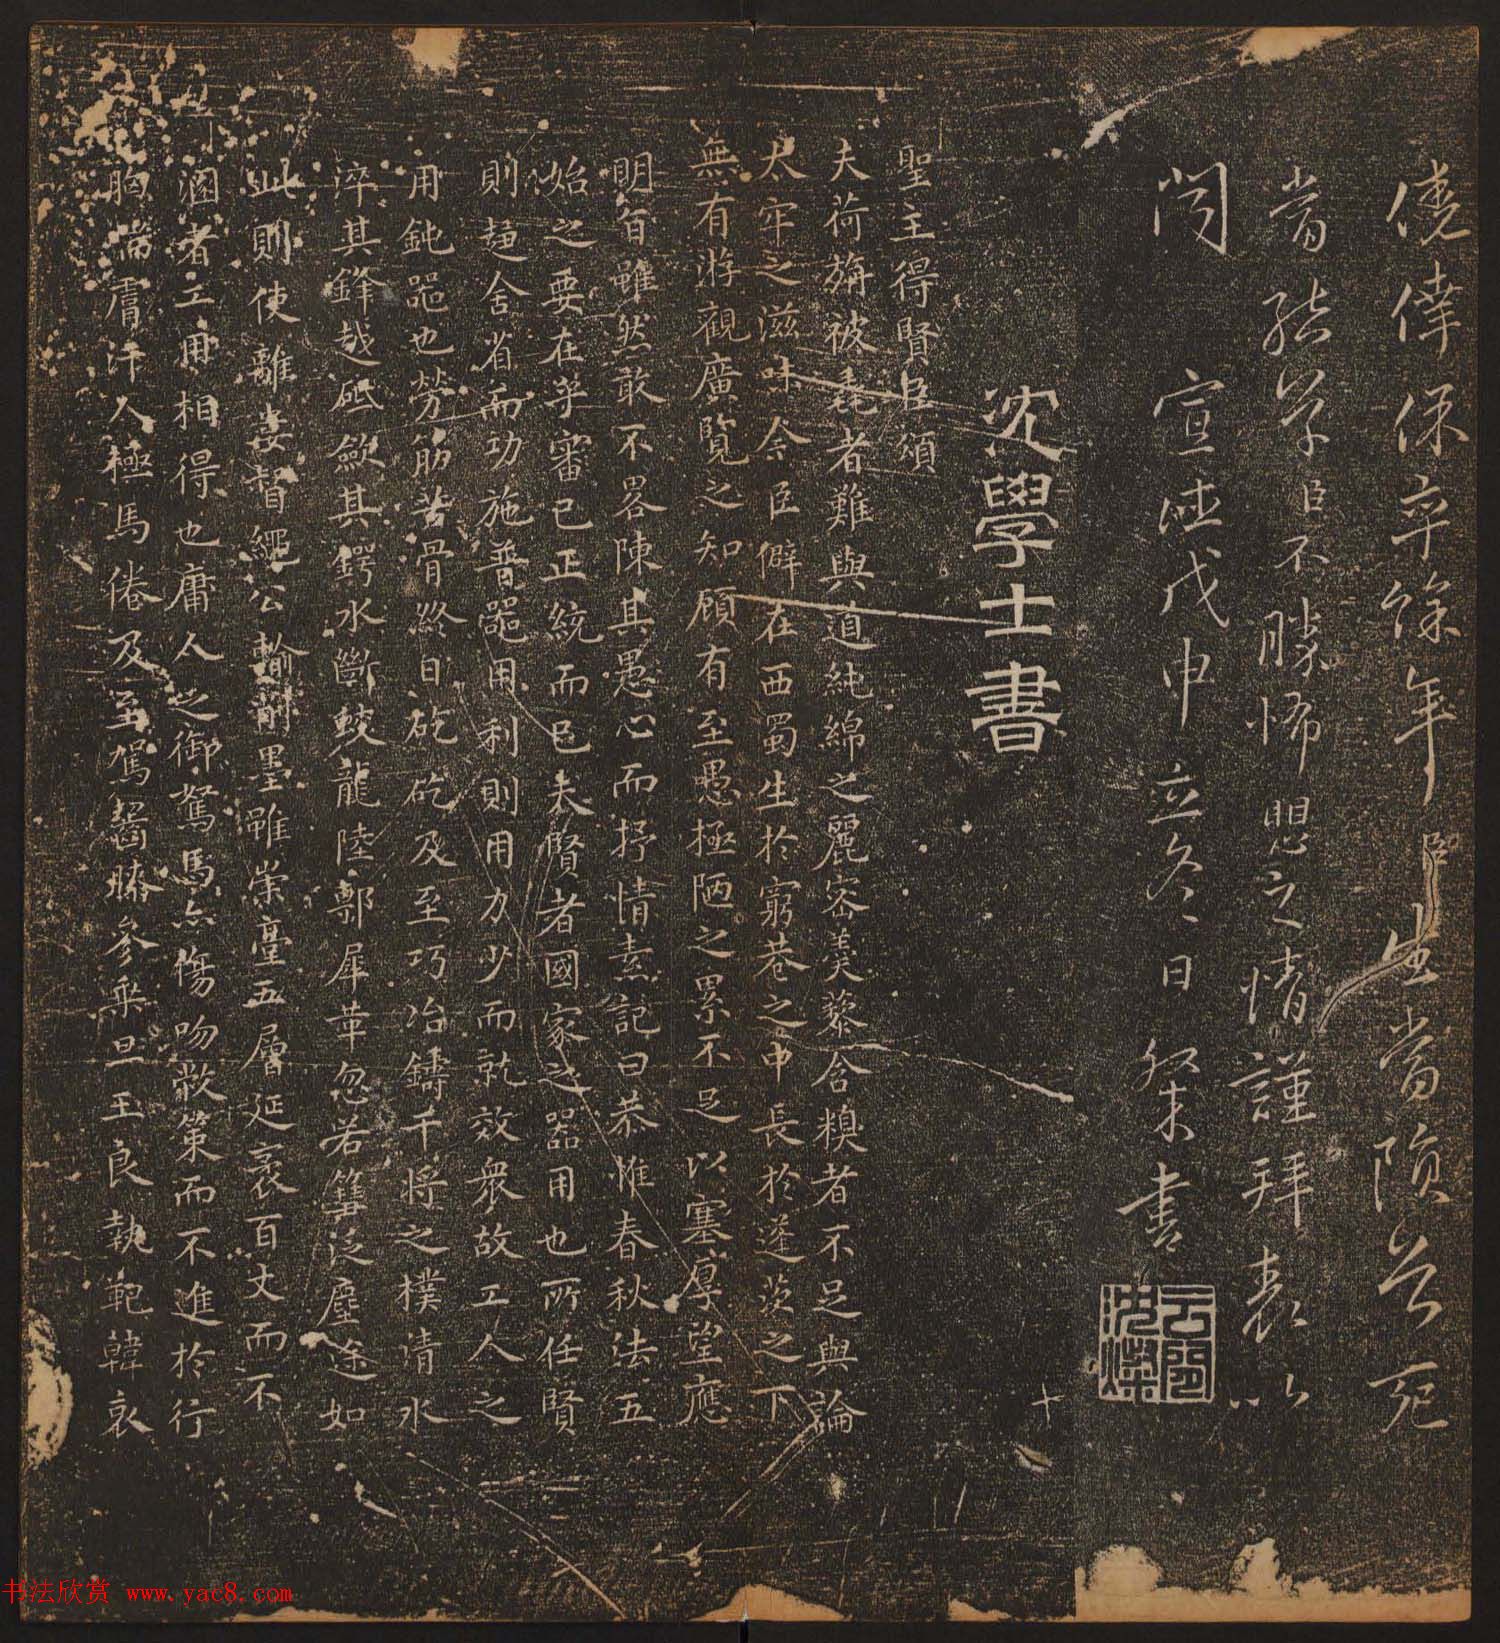 僥倖保卒餘年臣生當隕首死
當結草臣不勝怖懼之情謹拜表以
聞
宣德戊申立冬日粲書
雲間沈粲
沈學士書
聖主得賢臣頌
夫荷旃被毳者難與道純綿之麗密羹藜含糗者不足與論
太牢之滋味今臣僻在西蜀生於窮巷之中長於蓬茨之下
無有游觀廣覽之知顧有至愚極陋之累不足以塞厚望應
明旨雖然敢不畧陳其愚心而抒情素記曰恭惟春秋法五
始之要在乎審己正統而已夫賢者國家之器用也所任賢
則趨舍省而功施普器用利則用力少而就效衆故工人之
用鈍器也勞筋苦骨終日矻矻及至巧冶鑄干將之樸清水
淬其鋒越砥歛其鍔水斷蛟龍陸剸犀革忽若篲泛塵塗如
此則使離婁督繩公輸削墨雖崇臺五層延袤百丈而不
溷者工用相得也庸人之御駑馬亦傷吻敝策而不進於行
胸喘膚汗人極馬倦及至駕齧膝參乘旦王良執靶韓哀
十
书法欣赏 www.yac8.com